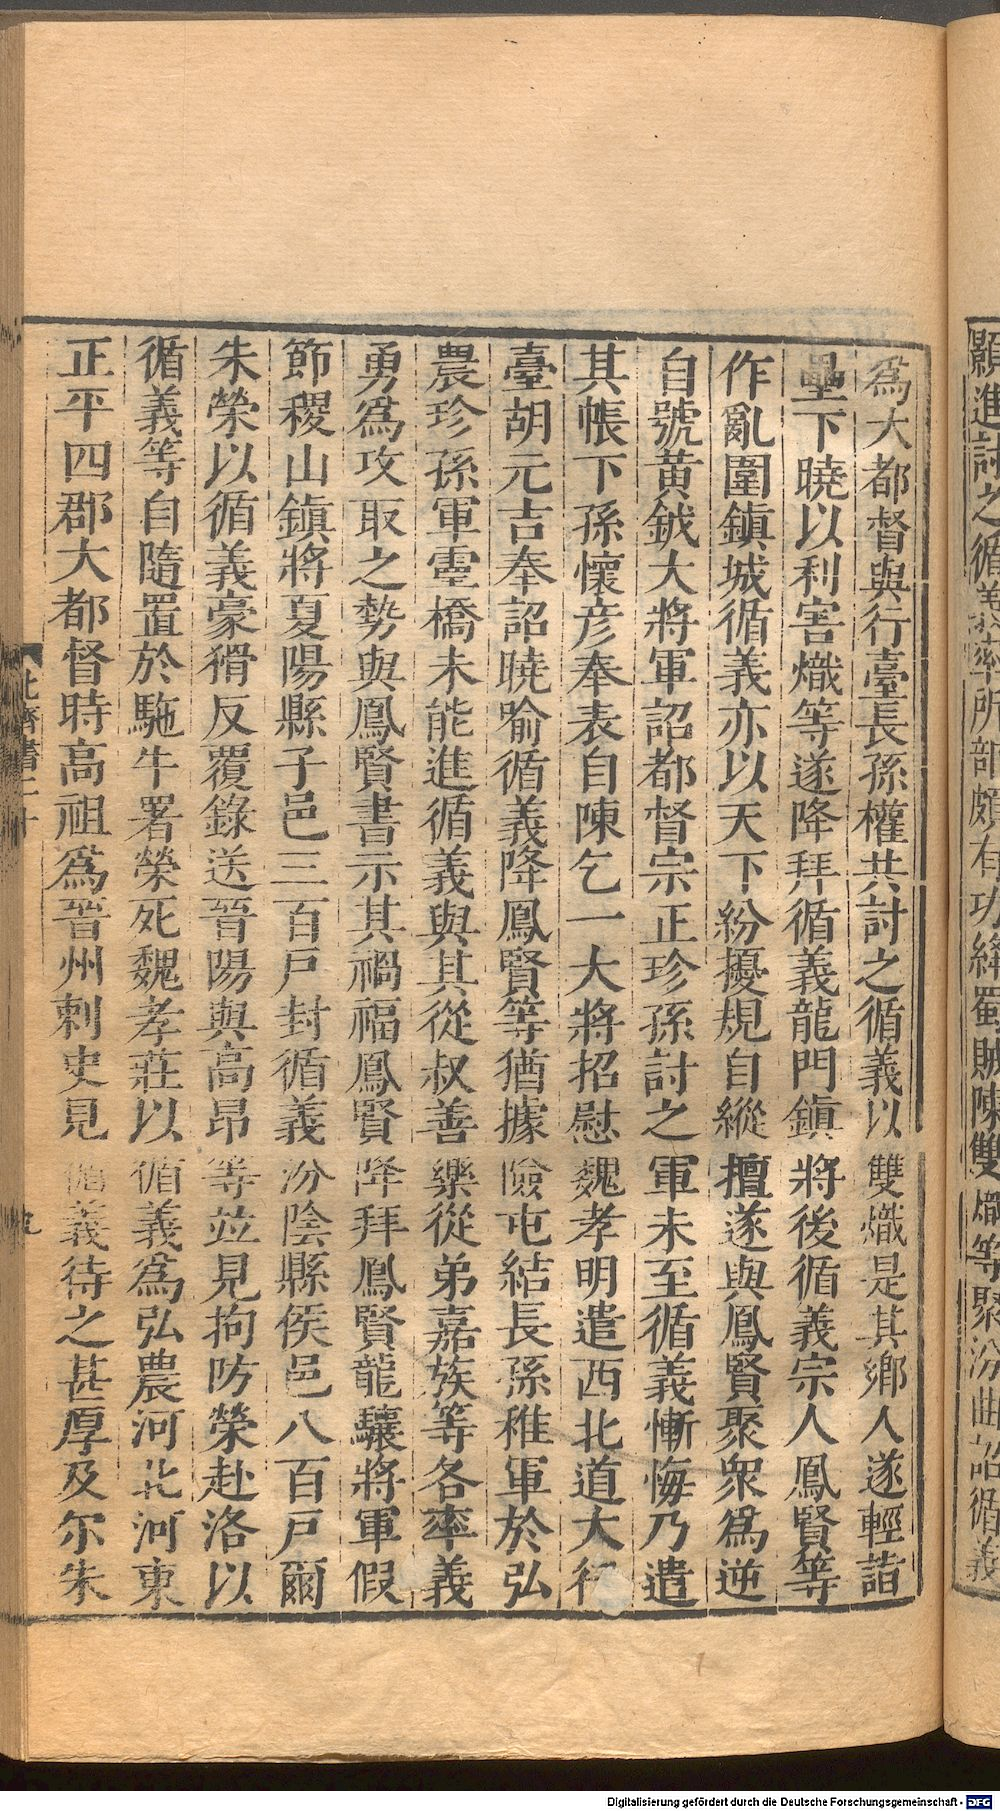 顯進討之循義率所部頗有功絳蜀賊陳雙熾等聚汾曲詔循義
爲大都督與行臺長孫權共討之循義以雙熾是其鄉人遂輕詣
壘下曉以利害熾等遂降拜循義龍門鎮將後循義宗人鳳賢等
作亂圍鎮城循義亦以天下紛擾規自縱擅遂與鳳賢聚衆爲逆
自號黄鉞大將軍詔都督宗正珍孫討之軍未至循義慚悔乃遣
其帳下孫懷彦奉表自陳乞一大將招慰魏孝明遣西北道大行
臺胡元吉奉詔曉喻循義降鳳賢等猶據險屯結長孫稚軍於弘
農珍孫軍靈橋未能進循義與其從叔善樂從弟嘉族等各率義
勇爲攻取之勢與鳳賢書示其禍福鳳賢降拜鳳賢龍驤將軍假
節稷山鎮將夏陽縣子邑三百戸封循義汾陰縣侯邑八百戸爾
朱榮以循義豪猾反覆錄送晉陽與高昂等並見拘防榮赴洛以
循義等自隨置於駞牛署榮死魏孝莊以循義爲弘農河北河東
正平四郡大都督時高祖爲晉州刺史見循義待之甚厚及尔朱
北齊書二十
Digitalisierung gefördert durch die Deutsche Forschungsgemeinschaft - DFG